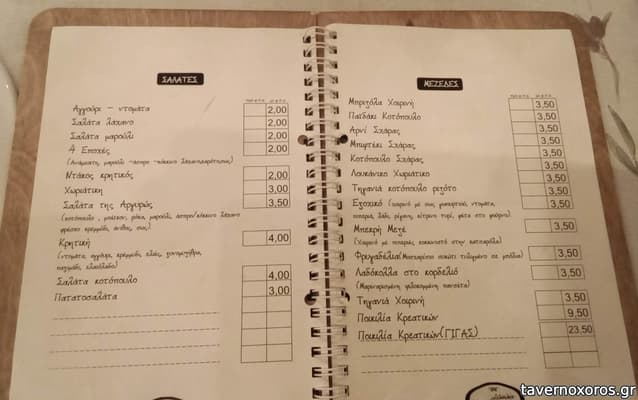 ΣΑΛΑΤΕΣ
Αγγούρι - ντομάτα 2,00
Σαλάτα λάχανο 2,00
Σαλάτα μαρούλι 2,00
4 Εποχές 2,00
Ντάκος κρητικός 2,00
Χωριάτικη 3,00
Σαλάτα της Αργυρώς 3,50
(κοτόπουλο, μπέικον, ρόκα, μαρούλι, άσπρο/κόκκινο λάχανο
φρέσκο κρεμμύδι, άνιθος, σως)
Κρητική 4,00
(ντομάτα, αγγούρι, κρεμμύδι, ελιές, ξινομυζήθρα,
παξιμάδι, ελαιόλαδο)
Σαλάτα κοτόπουλο 4,00
Πατατοσαλάτα 3,00
ΜΕΖΕΔΕΣ
Μπριζόλα Χοιρινή 3,50
Παϊδάκι Κοτόπουλο 3,50
Αρνί Σχάρας 3,50
Μπιφτέκι Σχάρας 3,50
Κοτόπουλο Σχάρας 3,50
Λουκάνικο Χωριάτικο 3,50
Τηγανιά κοτόπουλο ριζότο 3,50
Εξοχικό (χοιρινό με σως γιαουρτιού, ντομάτα, 3,50
πιπεριά, λάδι, ρίγανη, κίτρινο τυρί, φέτα στο φούρνο)
Μπεκρή Μεζέ 3,50
(Χοιρινό με πιπεριές κοκκινιστό στην κατσαρόλα)
Φρυγαδέλια(Μοσχαρίσιο συκώτι τυλιγμένο σε μπόλια) 3,50
Λαδόκολλα στο κορδελιό 3,50
(Μαριναρισμένη ψιλοκομμένη πανσέτα)
Τηγανιά Χοιρινή 3,50
Ποικιλία Κρεατικών 9,50
Ποικιλία Κρεατικών(ΓΙΓΑΣ) 23,50
tavernoxoros.gr